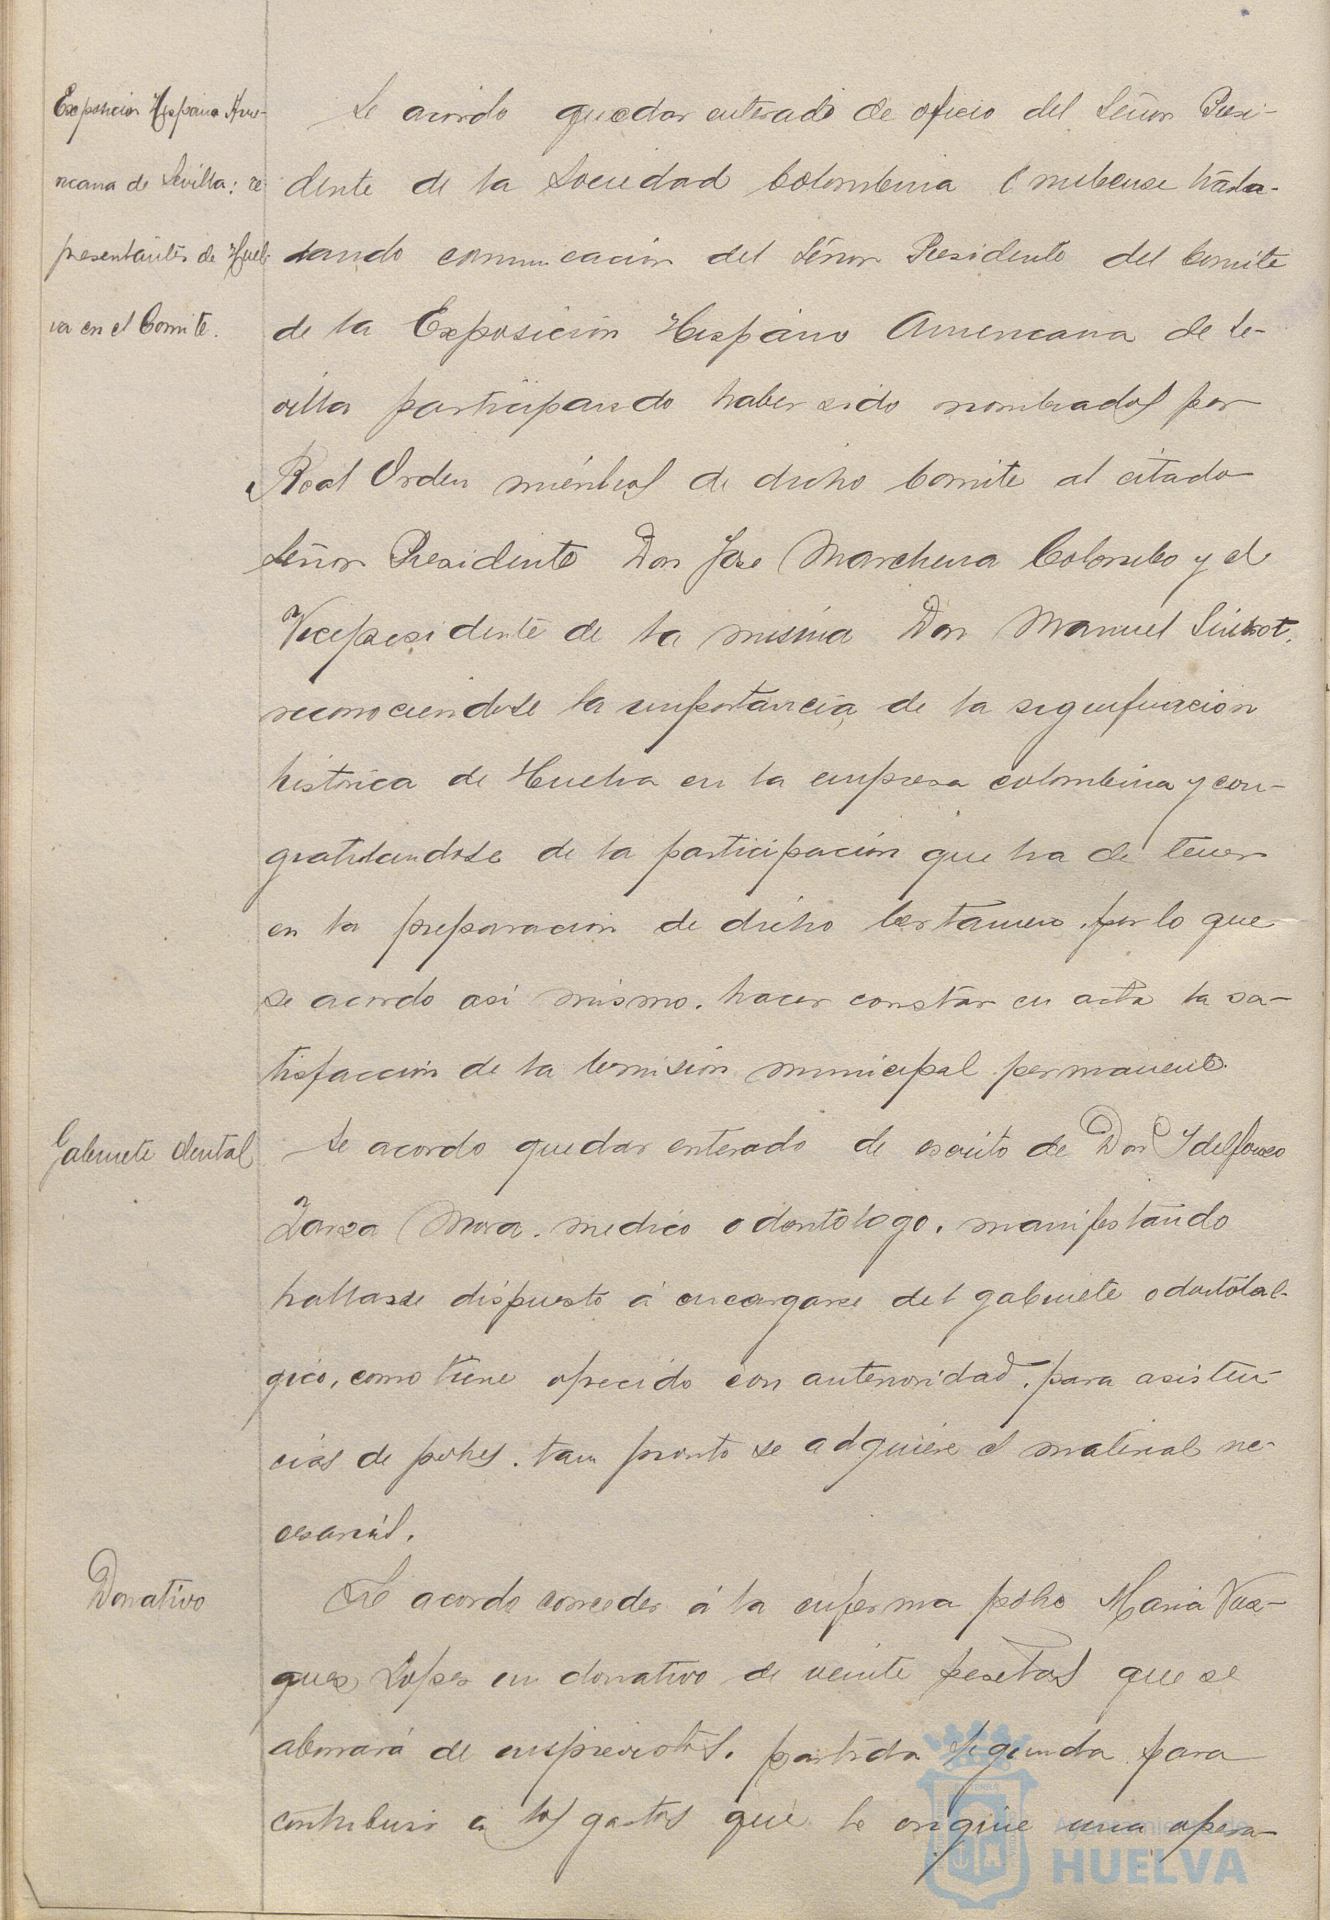 Exposición Hispano Ame-
ricana de Sevilla: re-
presentantes de Huel-
va en el Comite.
Se acordo quedar enterado de oficio del Señor Presi-
dente de la Sociedad Colombina Onubense trasla-
dando comunicacion del Señor Presidente del Comite
de la Exposición Hispano Americana de Se-
villa participando haber sido nombrados por
Real Orden miembros de dicho Comite al citado
Señor Presidente Don Jose Marchena Colombo y el
Vicepresidente de la misma Don Manuel Siurot,
reconociendose la importancia de la significacion
historica de Huelva en la empresa colombina y con-
gratulandose de la participación que ha de tener
en la preparacion de dicho Certamen, por lo que
se acordo asi mismo, hacer constar en acta la sa-
tisfacción de la Comisión municipal permanente.
Gabinete dental
Se acordo quedar enterado de escrito de Don Ydelfonso
Zarza Mora, medico odontologo, manifestando
hallarse dispuesto á encargarse del gabinete odontoló-
gico, como tiene ofrecido con anterioridad, para asisten-
cias de pobres, tan pronto se adquiere el material ne-
cesario.
Donativo
Se acordo conceder á la enferma pobre Maria Vaz-
quez Lopez un donativo de veinte pesetas que se
abonará de imprevistos, partida segunda para
contribuir a los gastos que le origine una opera-
Ayuntamiento de
HUELVA